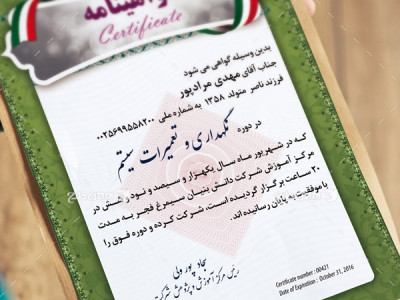 گواهینامه
Certificate
بدین وسیله گواهی می شود
جناب آقای مهدی مرادپور
فرزند ناصر متولد ۱۳۵۸ به شماره ملی ۰۰۲۵۶۹۹۵۵۸۲۰۰
در دوره نگهداری و تعمیرات سیستم
که در شهریور ماه سال یکهزار و سیصد و نود و شش در
مرکز آموزش شرکت دانش بنیان سیمرغ فجر به مدت
۲۰ ساعت برگزار گردیده است، شرکت کرده و دوره فوق را
با موفقیت به پایان رسانیده اند.
سجاد پور ولی
رئیس مرکز آموزش و پژوهش شرکت
Certificate number : 00421
Date of Expiration : October 31, 2016